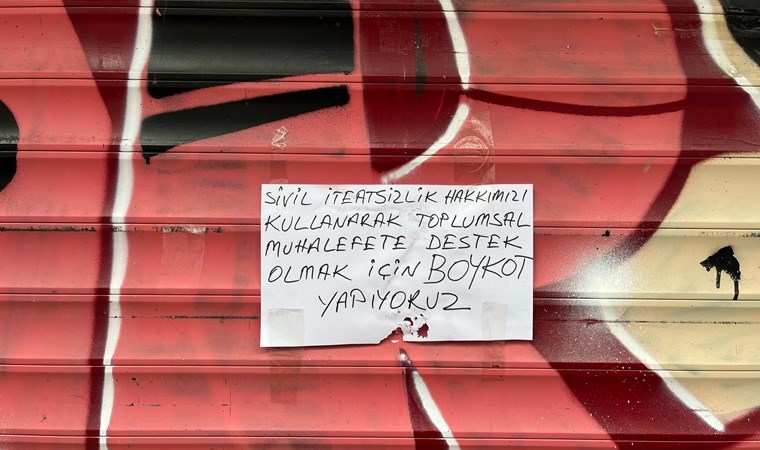 SİVİL İTEATSİZLİK HAKKIMIZI
KULLANARAK TOPLUMSAL
MUHALEFETE DESTEK
OLMAK İÇİN BOYKOT
YAPIYORUZ